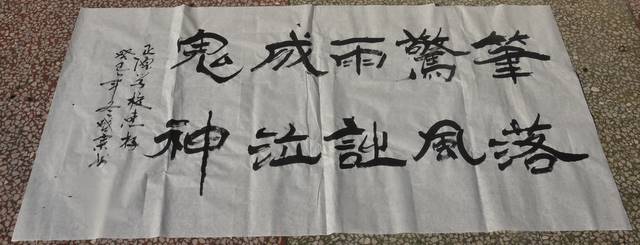 筆落
驚風
雨詩
成泣
鬼神
惠存
癸巳年